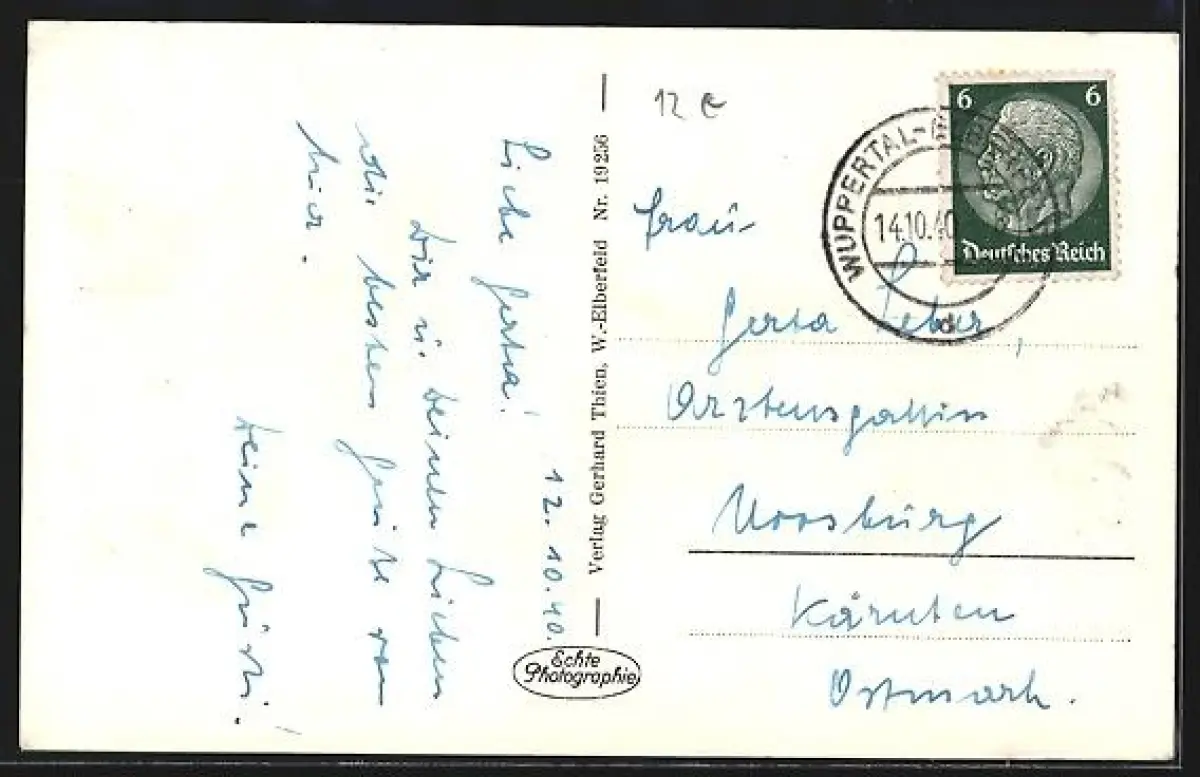 12 €
6 6
Deutsches Reich
WUPPERTAL-
14.10.40
d
12. 10. 40.
Liebe Gerta!
Dir u. deinen Lieben
die besten Grüße von
hier.
Deine
Verlag Gerhard Thien, W.-Elberfeld Nr. 19256
Echte
Photographie
Frau
Gerta
Arztensgattin
Moosburg
Kärnten
Ostmark.